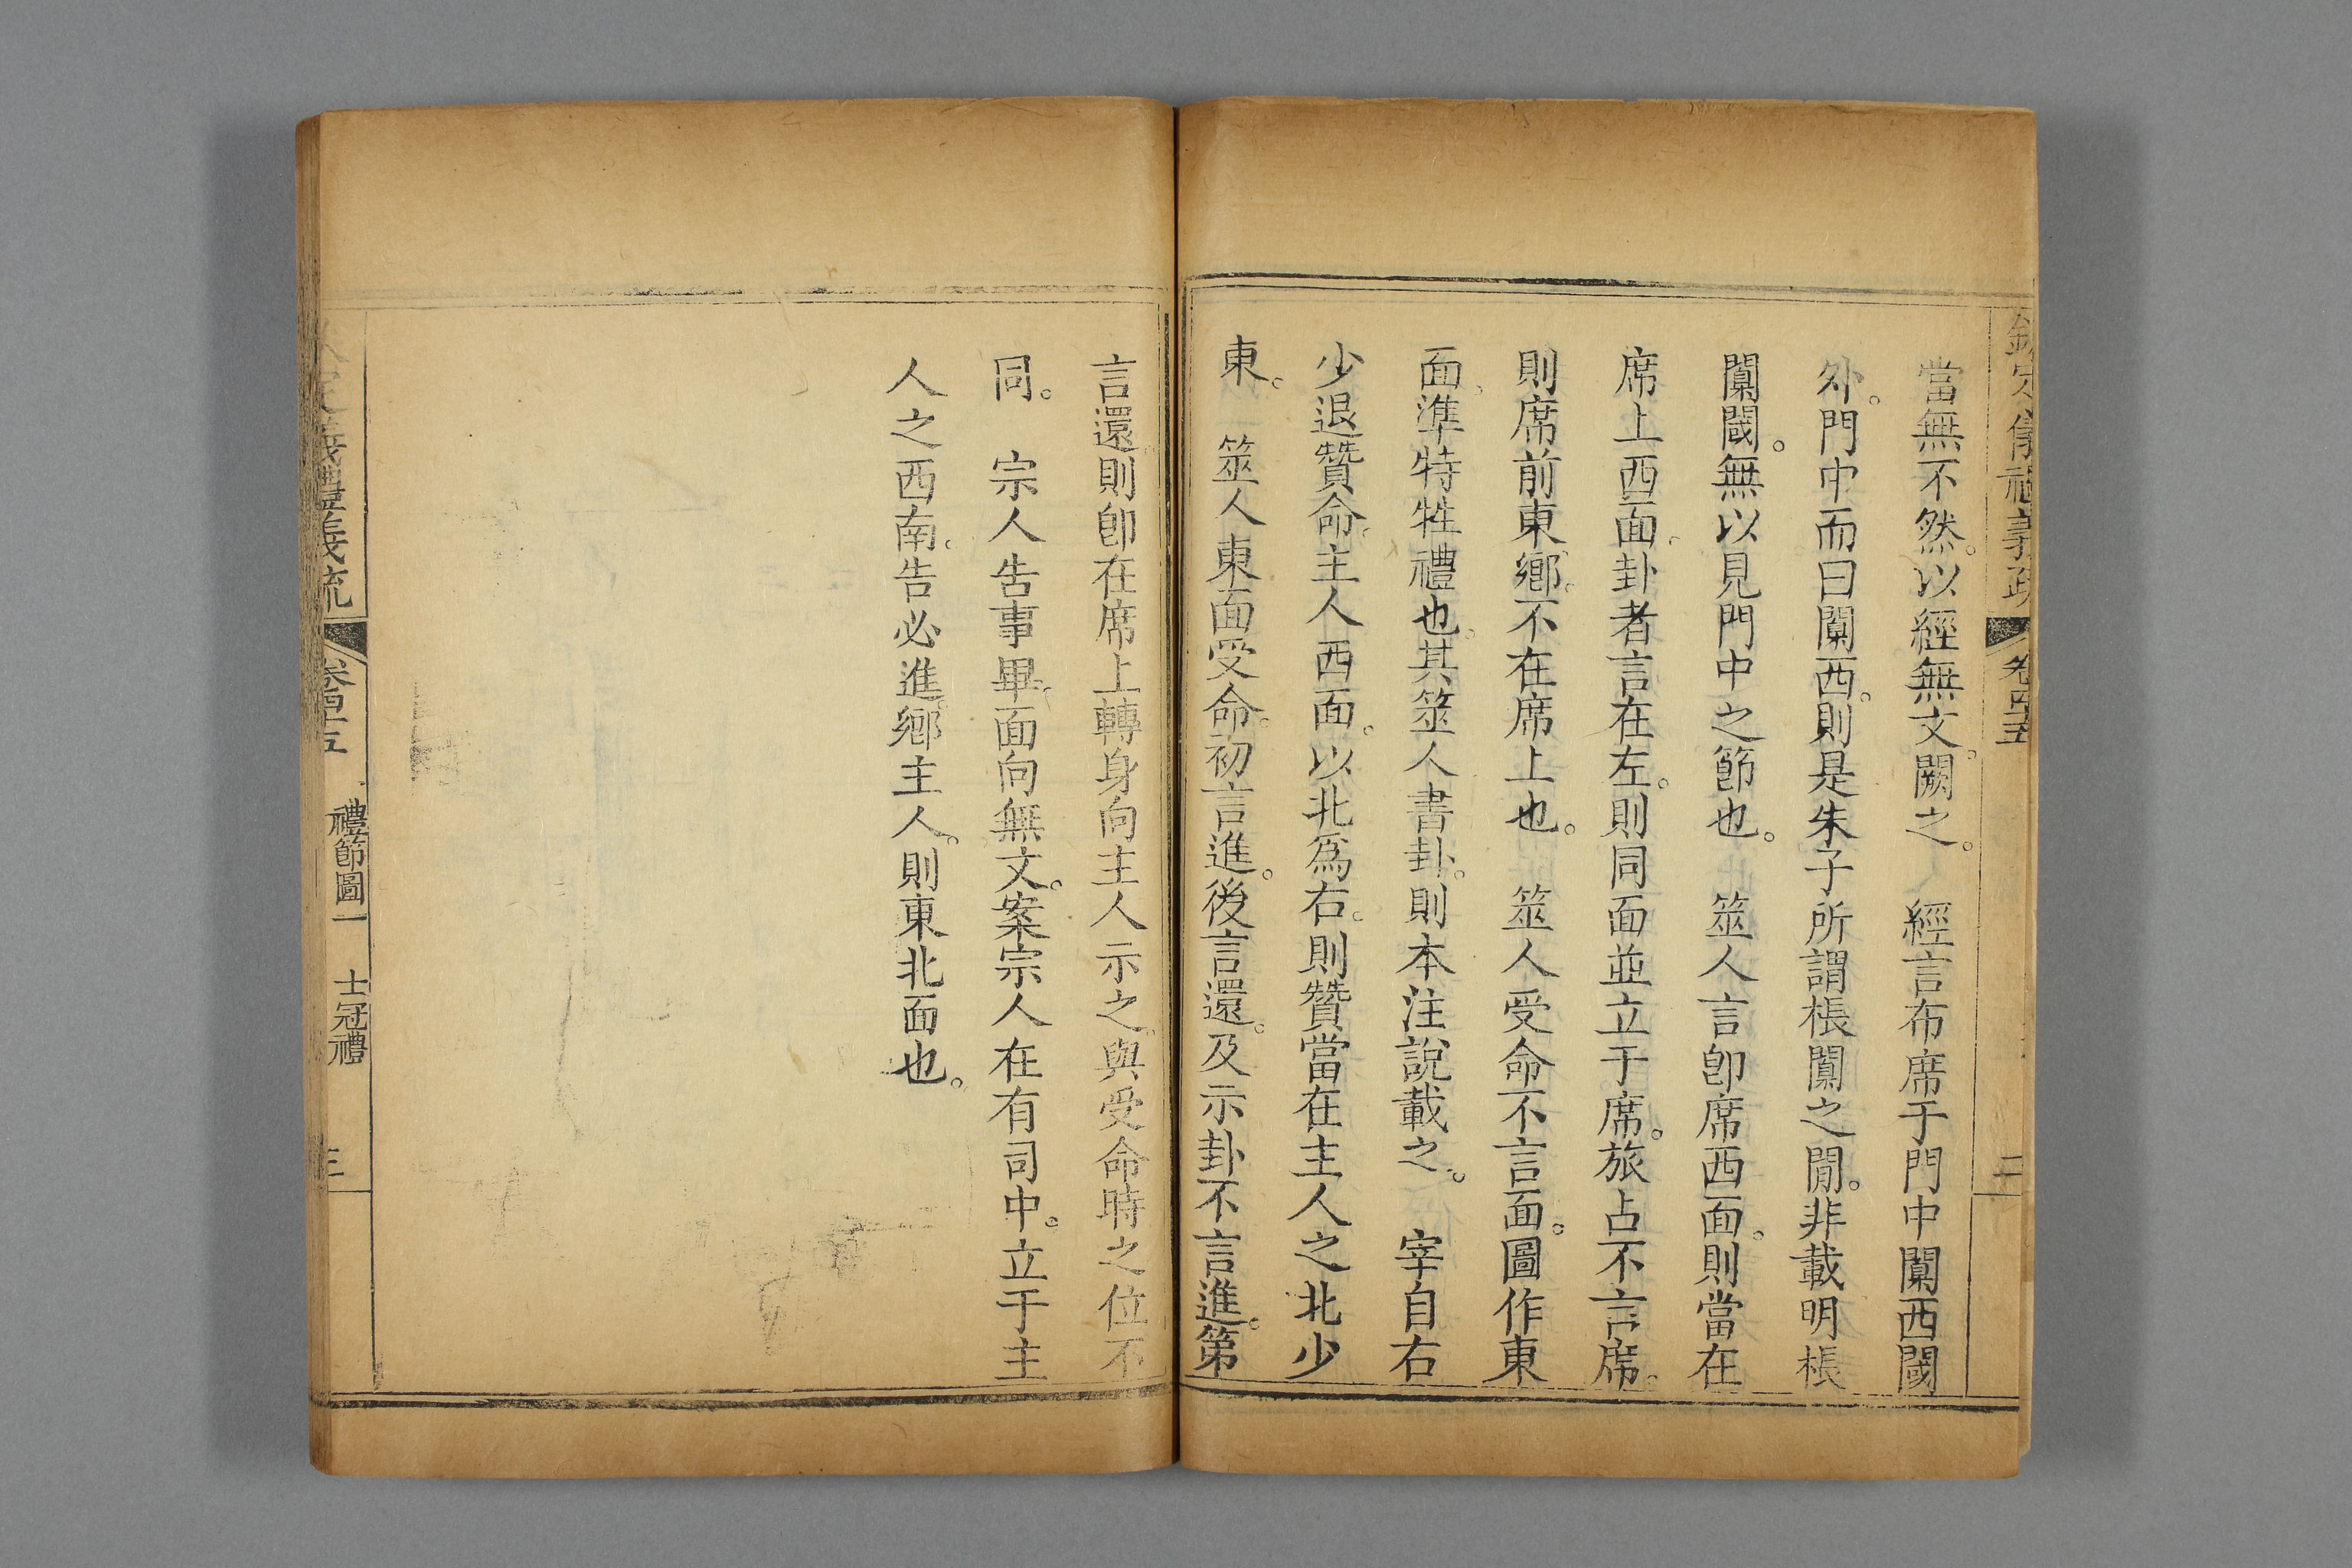 欽定儀禮義疏 卷四十五 二
當無不然。以經無文。闕之。 經言布席于門中闑西閾
外。門中而曰闑西。則是朱子所謂棖闑之閒。非載明棖
闑閾。無以見門中之節也。 筮人言卽席西面。則當在
席上西面。卦者言在左。則同面並立于席。旅占不言席。
則席前東鄉。不在席上也。 筮人受命不言面。圖作東
面。準特牲禮也。其筮人書卦。則本注說載之。 宰自右
少退贊命。主人西面。以北爲右。則贊當在主人之北少
東。 筮人東面受命。初言進。後言還。及示卦不言進。第
言還。則卽在席上轉身向主人示之。與受命時之位不
同。 宗人告事畢。面向無文。案宗人在有司中。立于主
人之西南。告必進鄉主人。則東北面也。
儀禮義疏 卷四十五 禮節圖一 士冠禮 三